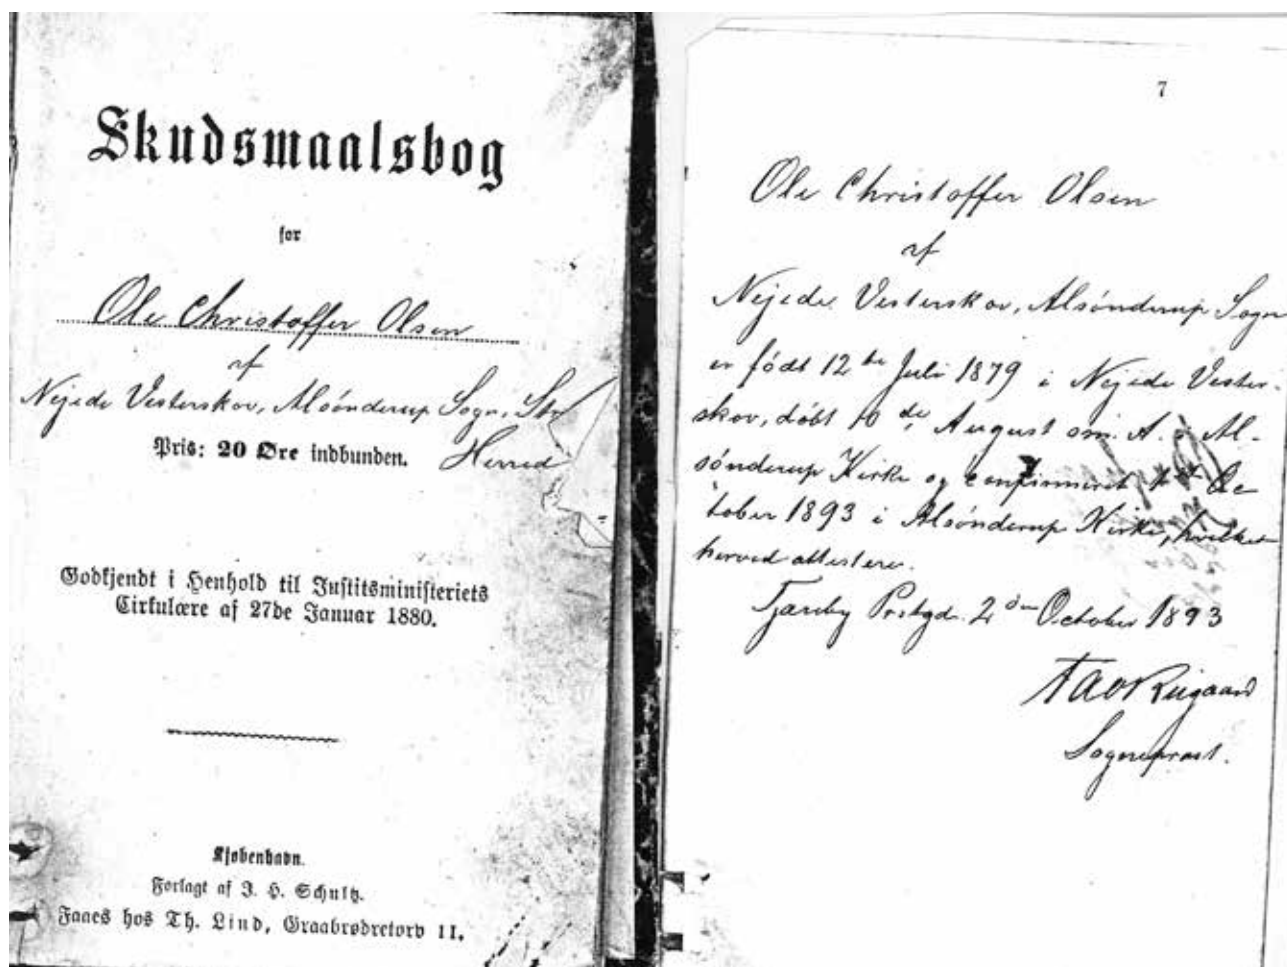 Skudsmaalsbog
for
Ole Christoffer Olsen
af
Nejede Vesterskov, Alsónderup Sogn,
Pris: 20 Øre indbunden. Herred
Godkjendt i Henhold til Justitsministeriets
Cirkulære af 27de Januar 1880.
Kjøbenhavn.
Forlagt af J. H. Schultz.
Faaes hos Th. Lind, Graabrødretorv 11.
7
Ole Christoffer Olsen
af
Nejede Vesterskov, Alsónderup Sogn
er fódt 12 te Juli 1879 i Nejede Vester-
skov, dóbt 10 de August s. A. i Al-
sónderup Kirke og confirmeret Oc
tober 1893 i Alsónderup Kirke, hvilket
herved attesteres.
Tjæreby Prstgd. 2 den October 1893
Sogneprast.